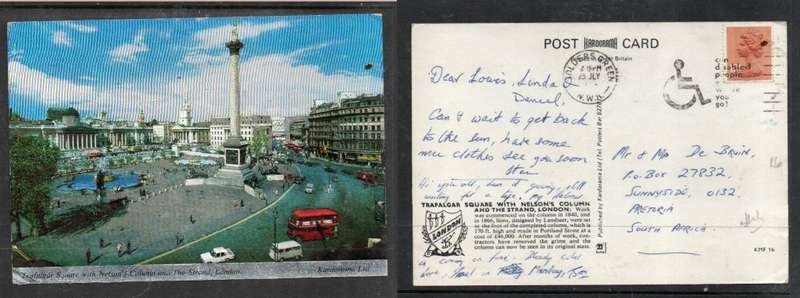 Trafalgar Square with Nelson's Column and The Strand, London.
Kardorama Ltd.
POST KARDORAMA CARD
GOLDERS GREEN
15 JLY
N.W.11
can
disabled
people
you
go?
Dear Lewis, Linda &
Daniel,
Can't wait to get back
to the sun, have some
new clothes see you soon
Stan
Hi you all, still
waiting for a
TRAFALGAR SQUARE WITH NELSON'S COLUMN
AND THE STRAND, LONDON: Work
was commenced on the column in 1840, and
in 1868, lions, designed by Landseer, were set
at the foot of the completed column, which is
170 ft. high and made in Portland Stone at a
cost of £46,000. After months of work, con-
tractors have removed the grime and the
column can now be seen in its original state.
LONDON
is coming on fine.
Love,
Published by Kardorama Ltd (Tel. Potters Bar
Mr & Mrs De Bruin,
P.O. Box 27832,
SUNNYSIDE, 0132,
PRETORIA
SOUTH AFRICA.
KMF 16